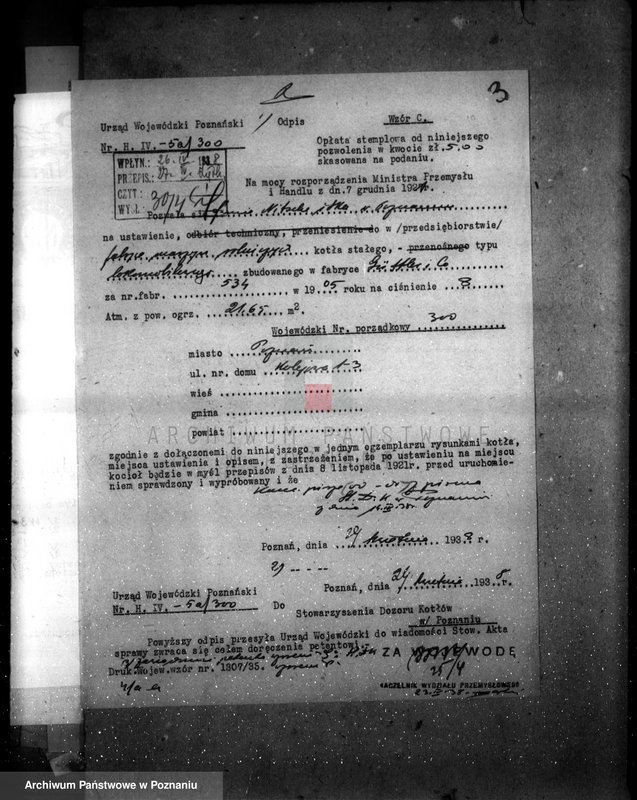 3
Urząd Wojewódzki Poznański
1/ Odpis
Wzór C.
Nr. H. IV. -5a/300
Opłata stemplowa od niniejszego
pozwolenia w kwocie zł. 5.00
skasowana na podaniu.
WPŁYN.: 26. IV 1938
PRZEPIS.: 27. IV.
CZYT.:
WYSŁ. 30/4
Na mocy rozporządzenia Ministra Przemysłu
i Handlu z dn. 7 grudnia 192
na ustawienie, odbiór techniczny, przeniesienie do w /przedsiębiorstwie/
kotła stałego, - przenośnego typu
zbudowanego w fabryce
za nr.fabr. 534 w 1905 roku na ciśnienie 8
Atm. z pow. ogrz. 21.65 m2.
Wojewódzki Nr. porządkowy 300
miasto Poznań
ul. nr. domu Kolejowa 1-3
wieś
gmina
powiat
ARCHIWUM PAŃSTWOWE
zgodnie z dołączonemi do niniejszego w jednym egzemplarzu rysunkami kotła,
miejsca ustawienia i opisem, z zastrzeżeniem, że po ustawieniu na miejscu
kocioł będzie w myśl przepisów z dnia 8 listopada 1921r. przed uruchomie-
niem sprawdzony i wypróbowany i że
Poznań, dnia 29 kwietnia 1938 r.
2/ -- - --
Urząd Wojewódzki Poznański
Poznań, dnia kwietnia 1938r.
Nr. H. IV. -5a/300
Do
Stowarzyszenia Dozoru Kotłów
w/ Poznaniu
Powyższy odpis przesyła Urząd Wojewódzki do wiadomości Stow. Akta
sprawy zwraca się celem doręczenia petentowi.
ZA WOJEWODĘ
Druk.Wojew.wzór nr. 1307/35.
25/4
NACZELNIK WYDZIAŁU PRZEMYSŁOWEGO
Archiwum Państwowe w Poznaniu